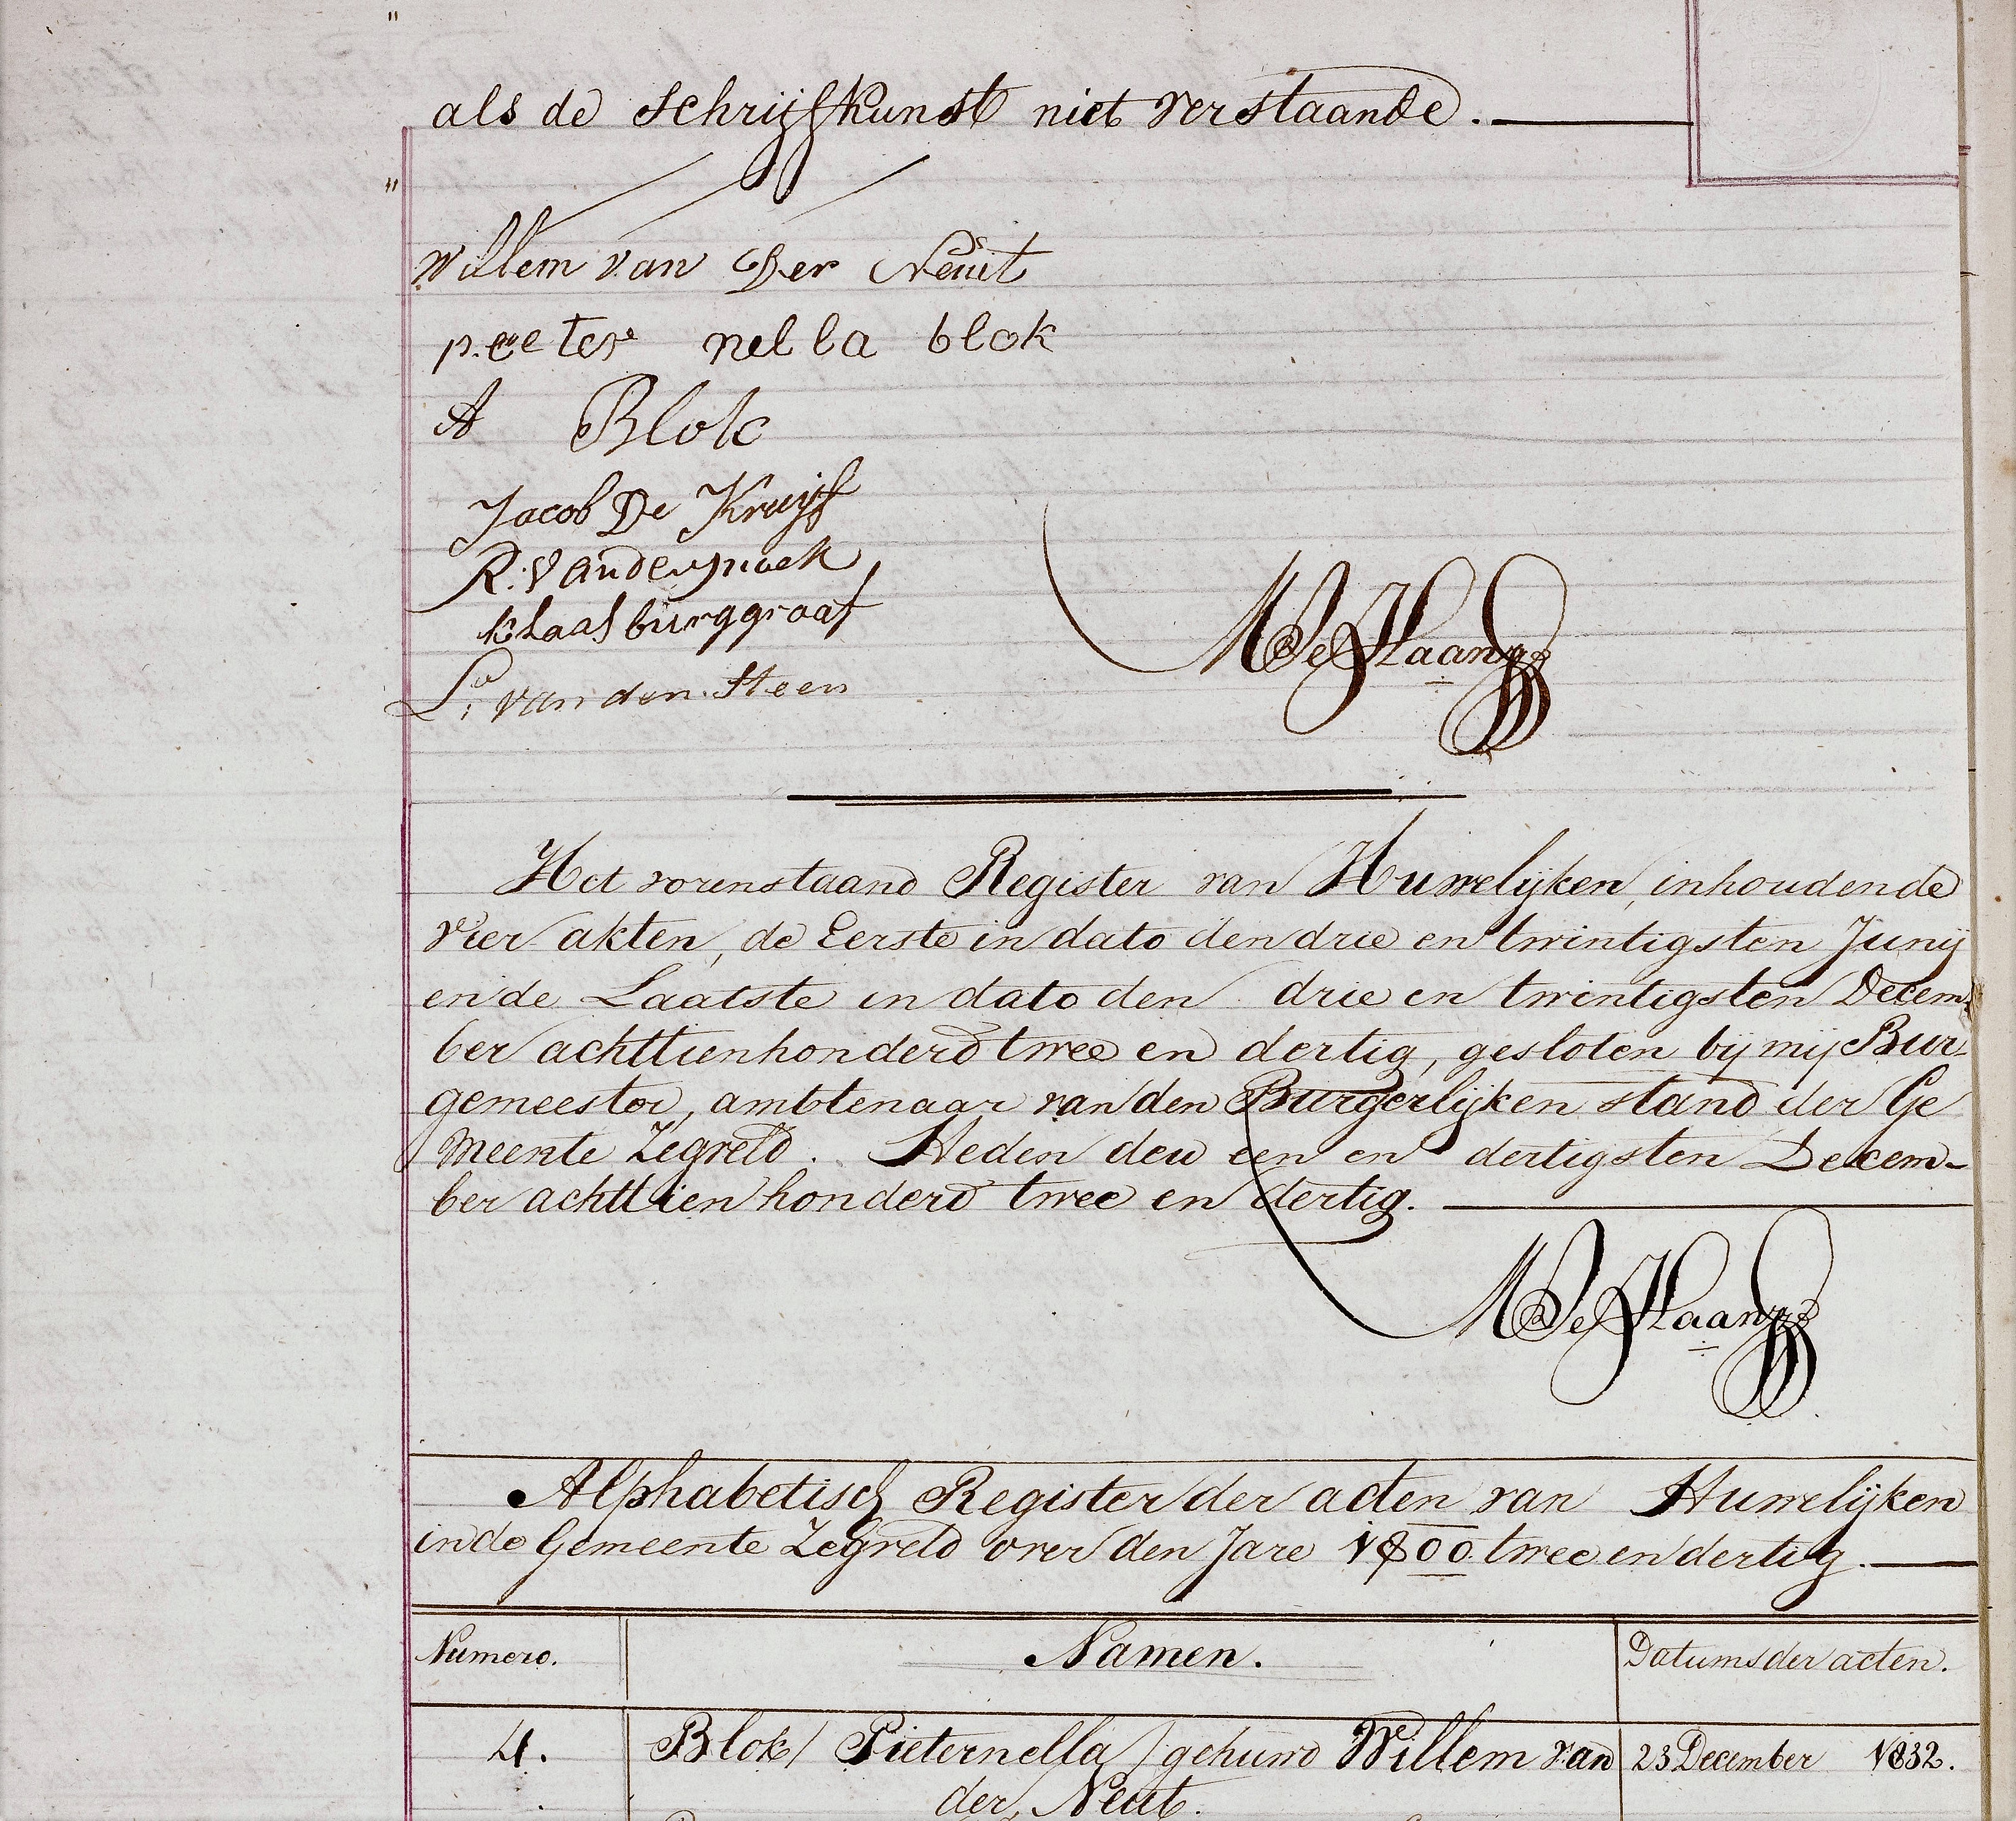 als de schrijfkunst niet verstaande.
Willem van Der Neuit
peeter nella blok
A Blok
Jacob De Kruijf
R: vander
klaas burggraaf
L: van den Steen
M De Haan
Het vorenstaand Register van Huwelijken, inhoudende
vier akten, de Eerste in dato den drie en twintigsten Junij
en de Laatste in dato den drie en twintigsten Decem-
ber achttienhonderd twee en dertig, gesloten bij mij Bur-
gemeester, ambtenaar van den Burgerlijken stand der Ge
meente Zegveld. Heden den een en dertigsten Decem-
ber achttien honderd twee en dertig.
M De Haan
Alphabetisch Register der acten van Huwelijken
in de Gemeente Zegveld over den Jare 1800 twee en dertig.
Numero. Namen. Datums der acten.
4. Blok / Pieternella / gehuwd Willem van 23 December 1832.
der, Neut.